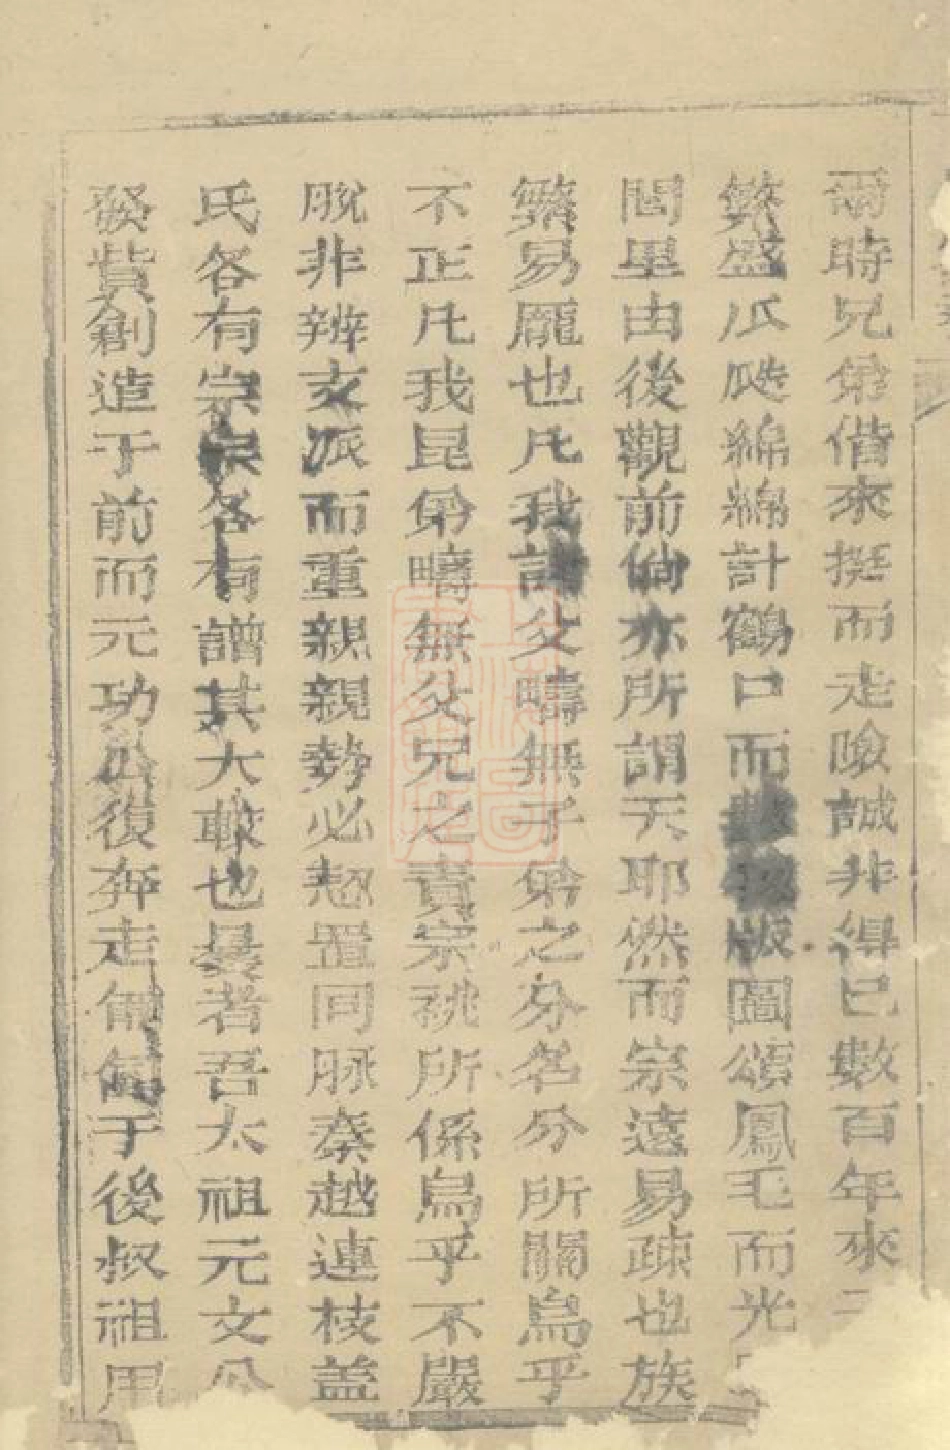 爾時兄弟偕來挺而走險誠非得已數百年來
繁盛瓜瓞綿綿計鶴口而數扨版圖頌鳳毛而光
閭里由後觀前倘亦所謂天耶然而宗遠易疎也族
繁易龐也凡我諸父疇無子弟之分名分所關烏乎
不正凡我昆弟疇無父兄之責宗祧所係烏乎不嚴
脫非辨支派而重親親勢必愬置同脉秦越連枝蓋
氏各有宗宗各有譜其大較也曩者吾太祖元文公
發貲創造于前而元功公復奔走備備于後叔祖用